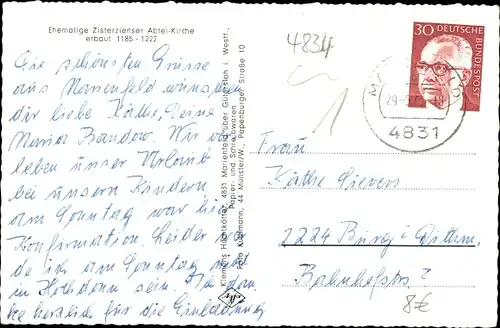 Ehemalige Zisterzienser Abtei-Kirche
erbaut 1185 - 1222
Die schönsten Grüsse
aus Marienfeld wünschen
dir liebe Käthe, Deine
Maria Bandow. Wir
leben unser Urlaub
bei unsern Kindern
am Sonntag war hier
Konfirmation. Leider
ich am Sonntag nicht
in Hochdonn sein.
herzlich für die Einladung
Klemens Hachtkötter, 4831 Marienfeld über Gütersloh i. Westf.
Papier- und Schreibwaren
Foto Kuhlmann, 44 Münster/W., Papenburger Straße 10
4834
30 DEUTSCHE BUNDESPOST
4831
Frau
Käthe Sievers
2224 Burg i. Dithm.
Bahnhofstr.?
8€